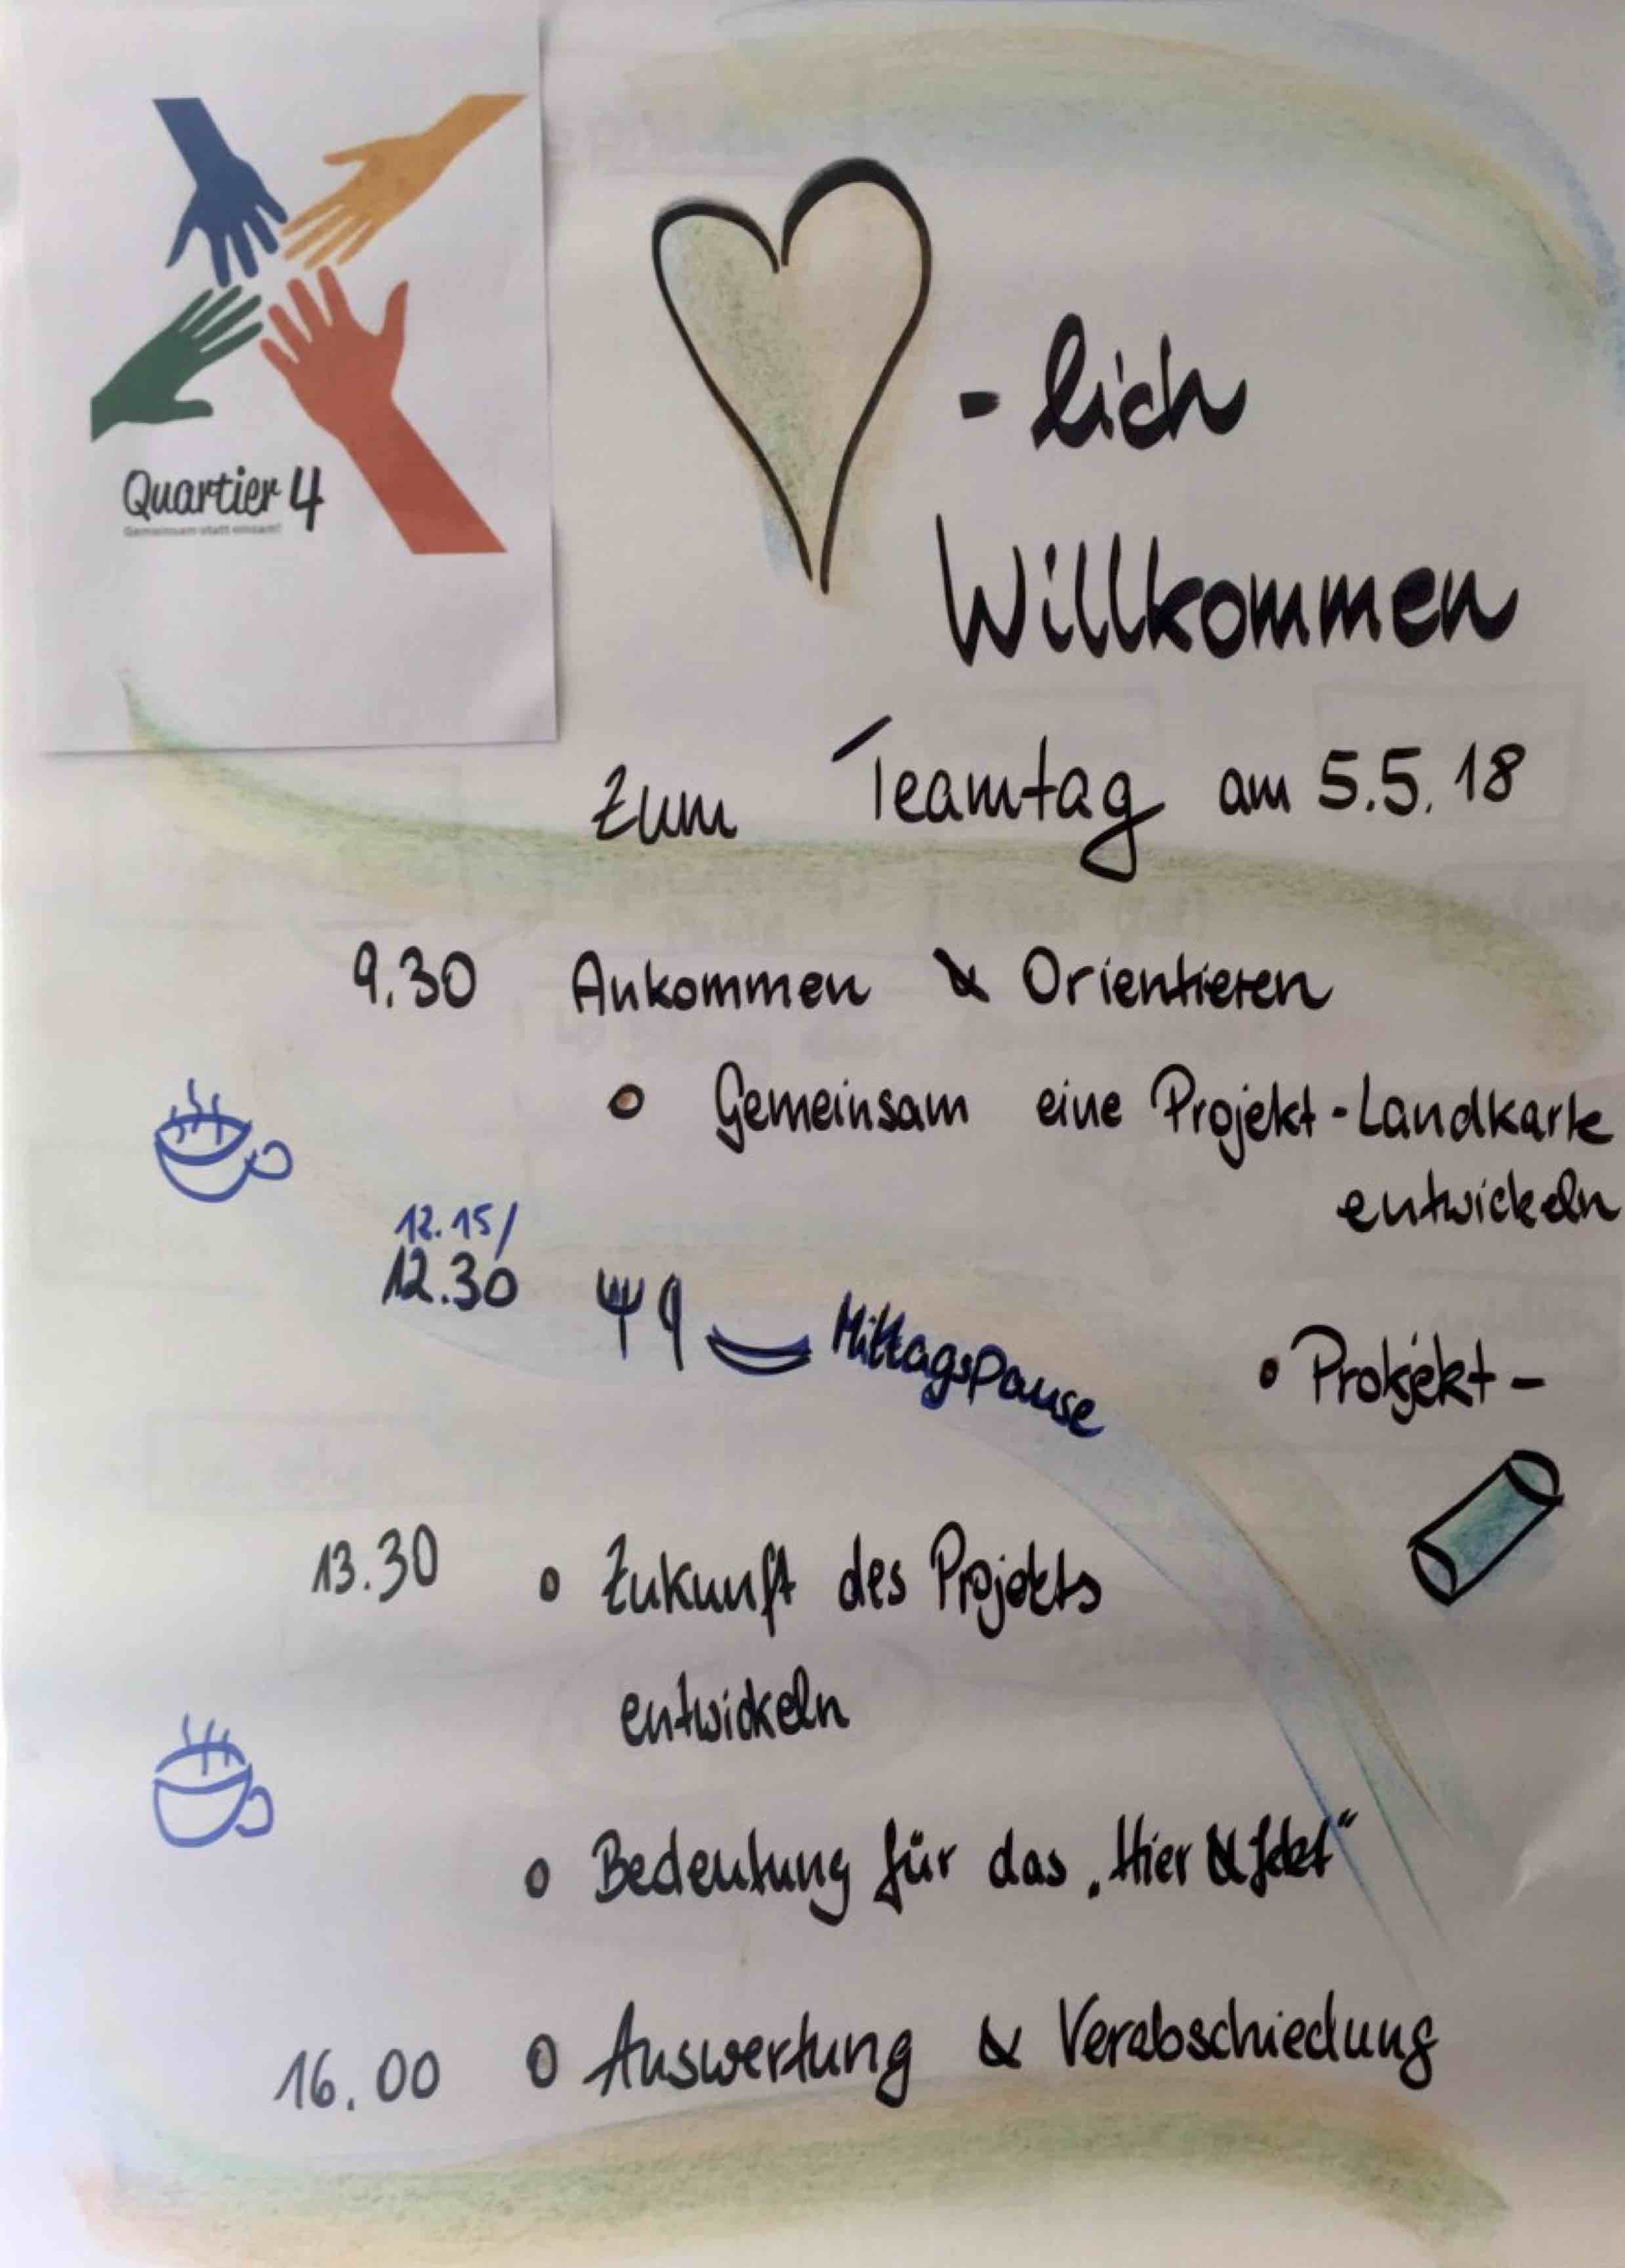 Quartier 4
Gemeinsam statt einsam!
-lich
Willkommen
zum Teamtag am 5.5.18
9.30 Ankommen & Orientieren
o Gemeinsam eine Projekt-Landkarte
entwickeln
12.15/
12.30 Mittagspause
• Projekt-
13.30 o Zukunft des Projekts
entwickeln
o Bedeutung für das „Hier & Jetzt“
16.00 o Auswertung & Verabschiedung